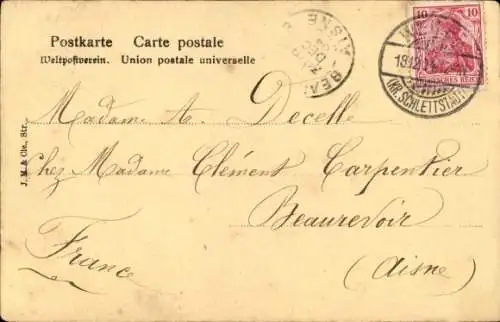 Postkarte Carte postale
Weltpostverein. Union postale universelle
AISNE
BEAU
10 10
REICH
(KR. SCHLETTSTADT)
J. M & Cie., Str.
Madame A. Decelle
Chez Madame Clément Carpentier
Beaurevoir
France
(Aisne)